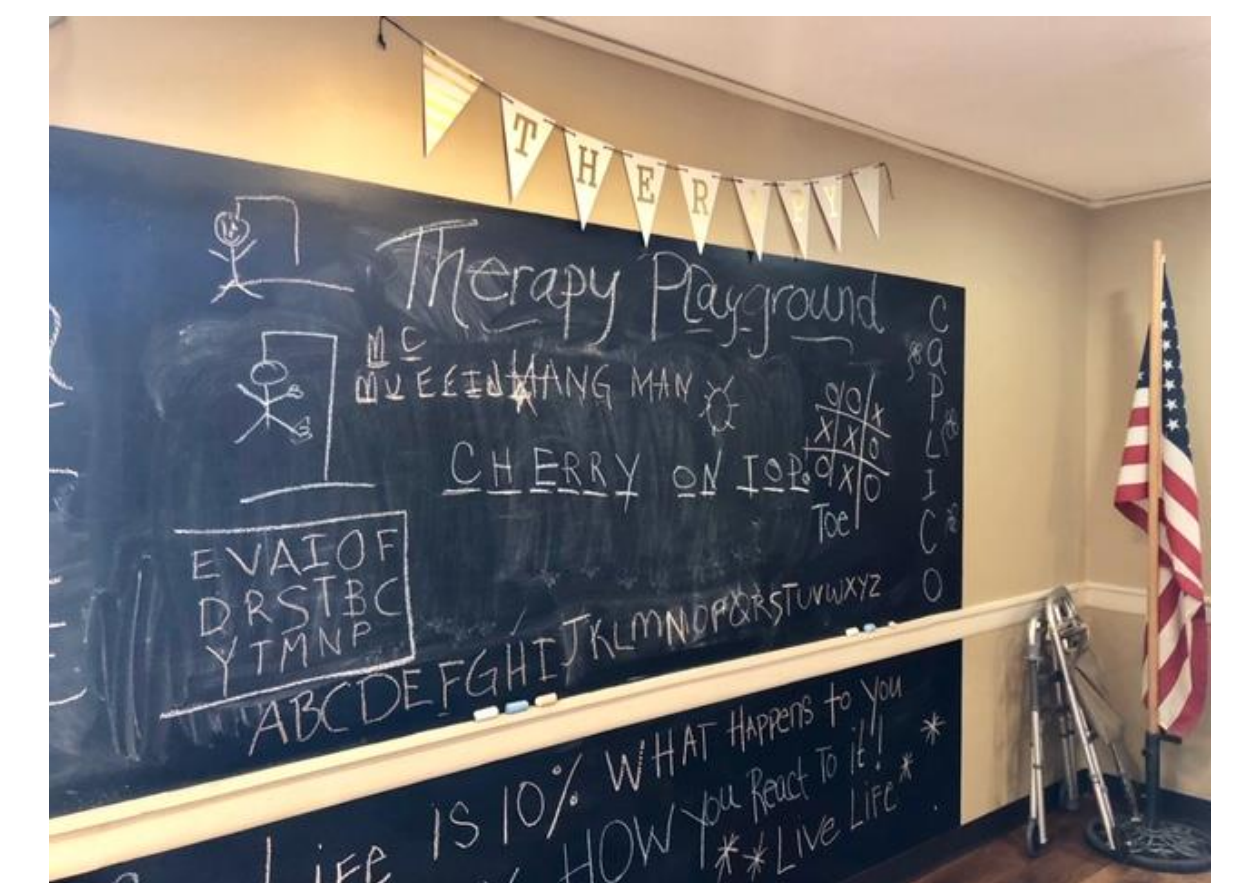 THERAPY
Therapy Playground
M C
HANG MAN
CHERRY ON TOP.
O O X
X X O
O X O
Toe
C
A
P
L
I
C
O
EVAIOF
DRSTBC
YTMNP
ABCDEFGHIJKLMNOPQRSTUVWXYZ
LIFE IS 10% WHAT HAPPENS to YOU
HOW YOU REACT TO it!
**LIVE LIFE**